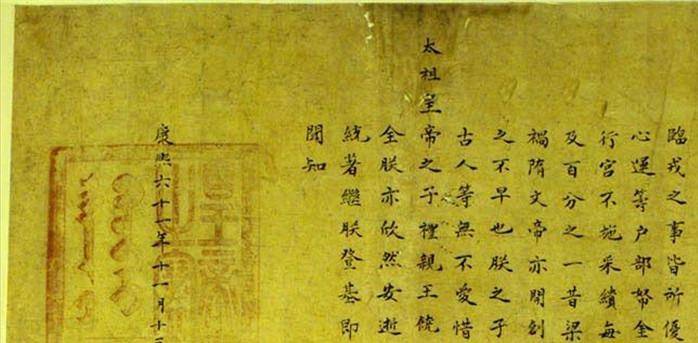 臨戎之事皆所優
心運等户部帑金
行宫不施采繢每
及百分之一昔梁
禍隋文帝亦開創
之不早也朕之子
古人等無不愛惜
太祖皇帝之子禮親王統
全朕亦欣然安逝
統著繼朕登基即
聞知
康熙六十一年十一月十三